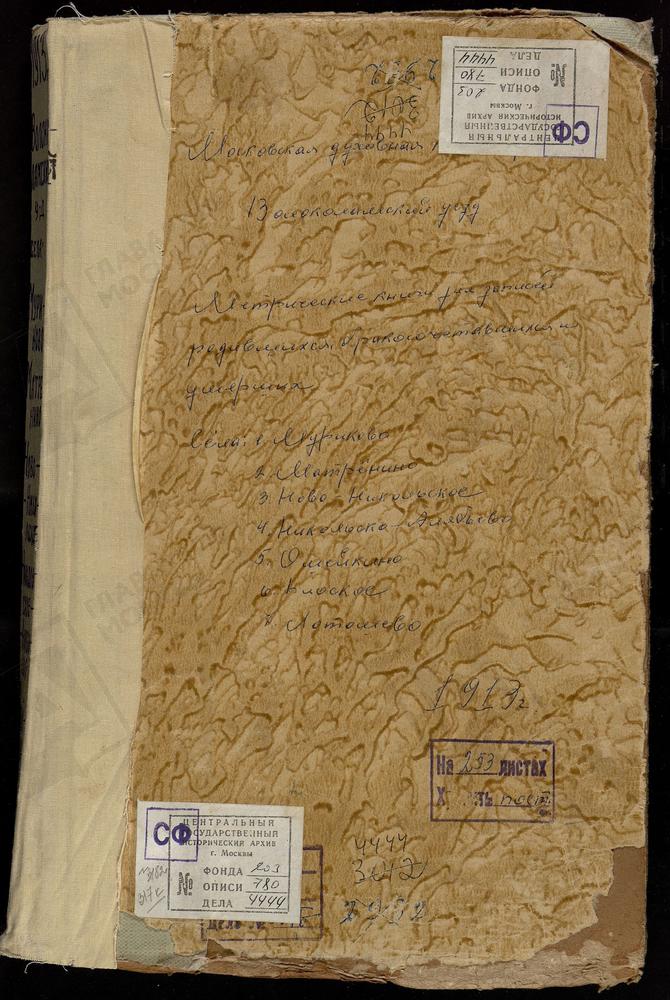 ЦЕНТРАЛЬНЫЙ
ГОСУДАРСТВЕННЫЙ
ИСТОРИЧЕСКИЙ АРХИВ
г. Москвы
СФ
ФОНДА 203
№ ОПИСИ 780
ДЕЛА 4444
4444
Московская духовная
Волоколамский уезд
Метрические книги для записей
родившихся, бракосочетавшихся и
умерших
Села: 1. Муриково
2. Матрёнино
3. Ново-Никольское
4. Никольско-Алябьево
5. Ошейкино
6. Плоское
7. Лотошево
1913г.
На 253 листах
пост.
СФ
ЦЕНТРАЛЬНЫЙ
ГОСУДАРСТВЕННЫЙ
ИСТОРИЧЕСКИЙ АРХИВ
г. Москвы
ФОНДА 203
№ ОПИСИ 780
ДЕЛА 4444
4444